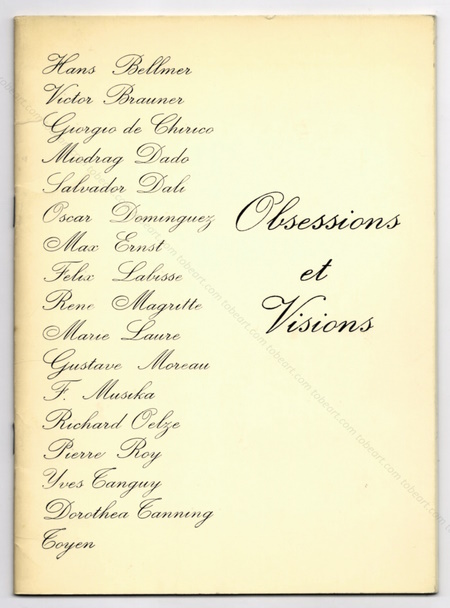 Hans Bellmer
Victor Brauner
Giorgio de Chirico
Miodrag Dado
Salvador Dali
Oscar Dominguez
Max Ernst
Felix Labisse
Rene Magritte
Marie Laure
Gustave Moreau
F. Musika
Richard Oelze
Pierre Roy
Yves Tanguy
Dorothea Tanning
Toyen
Obsessions
et
Visions
tobeart.com tobeart.com tobeart.com tobeart.com